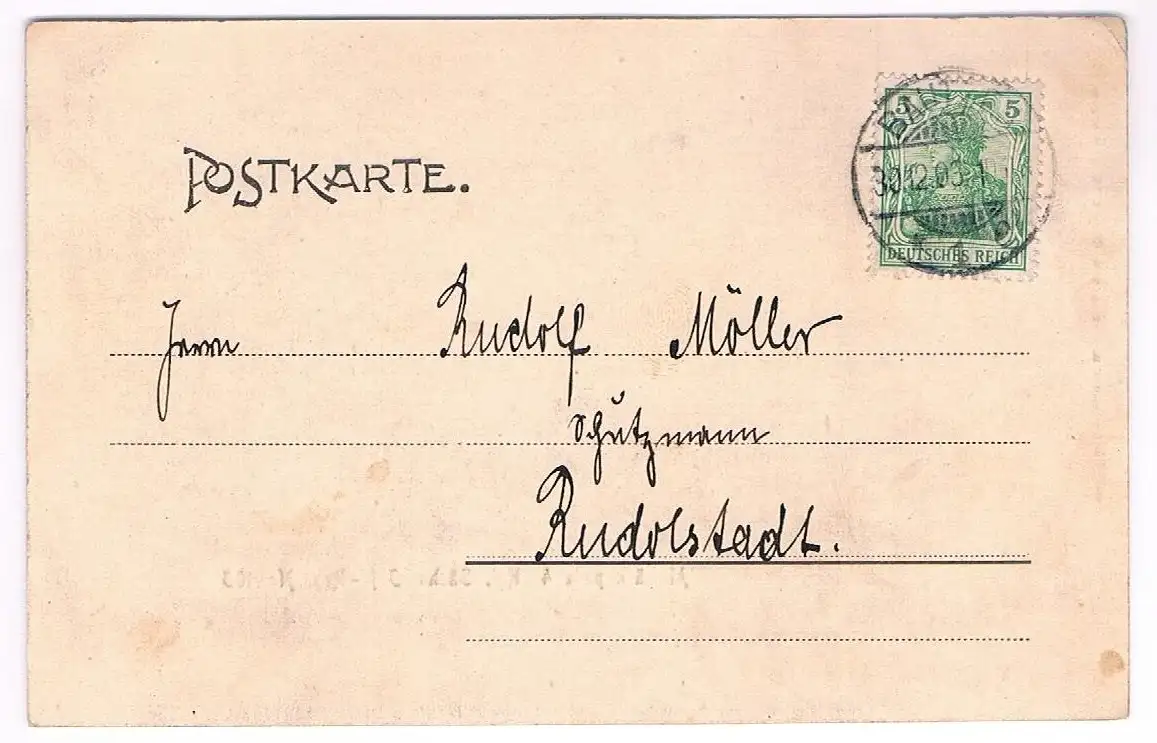 POSTKARTE.
5 5
DEUTSCHES REICH
30.12.03.1
Herrn Rudolf Möller
Schutzmann
Rudolstadt.